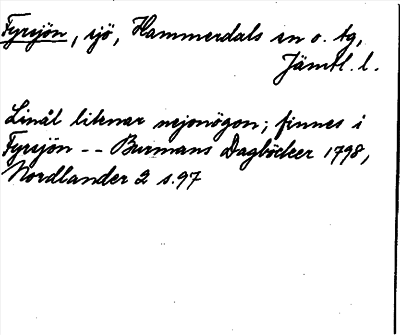 Fyrsjön, sjö, Hammerdals sn o. tg,
Jämtl. l.
Linål liknar nejonögon; finnes i
Fyrsjön -- Burmans Dagböcker 1798,
Nordlander 2 s.97